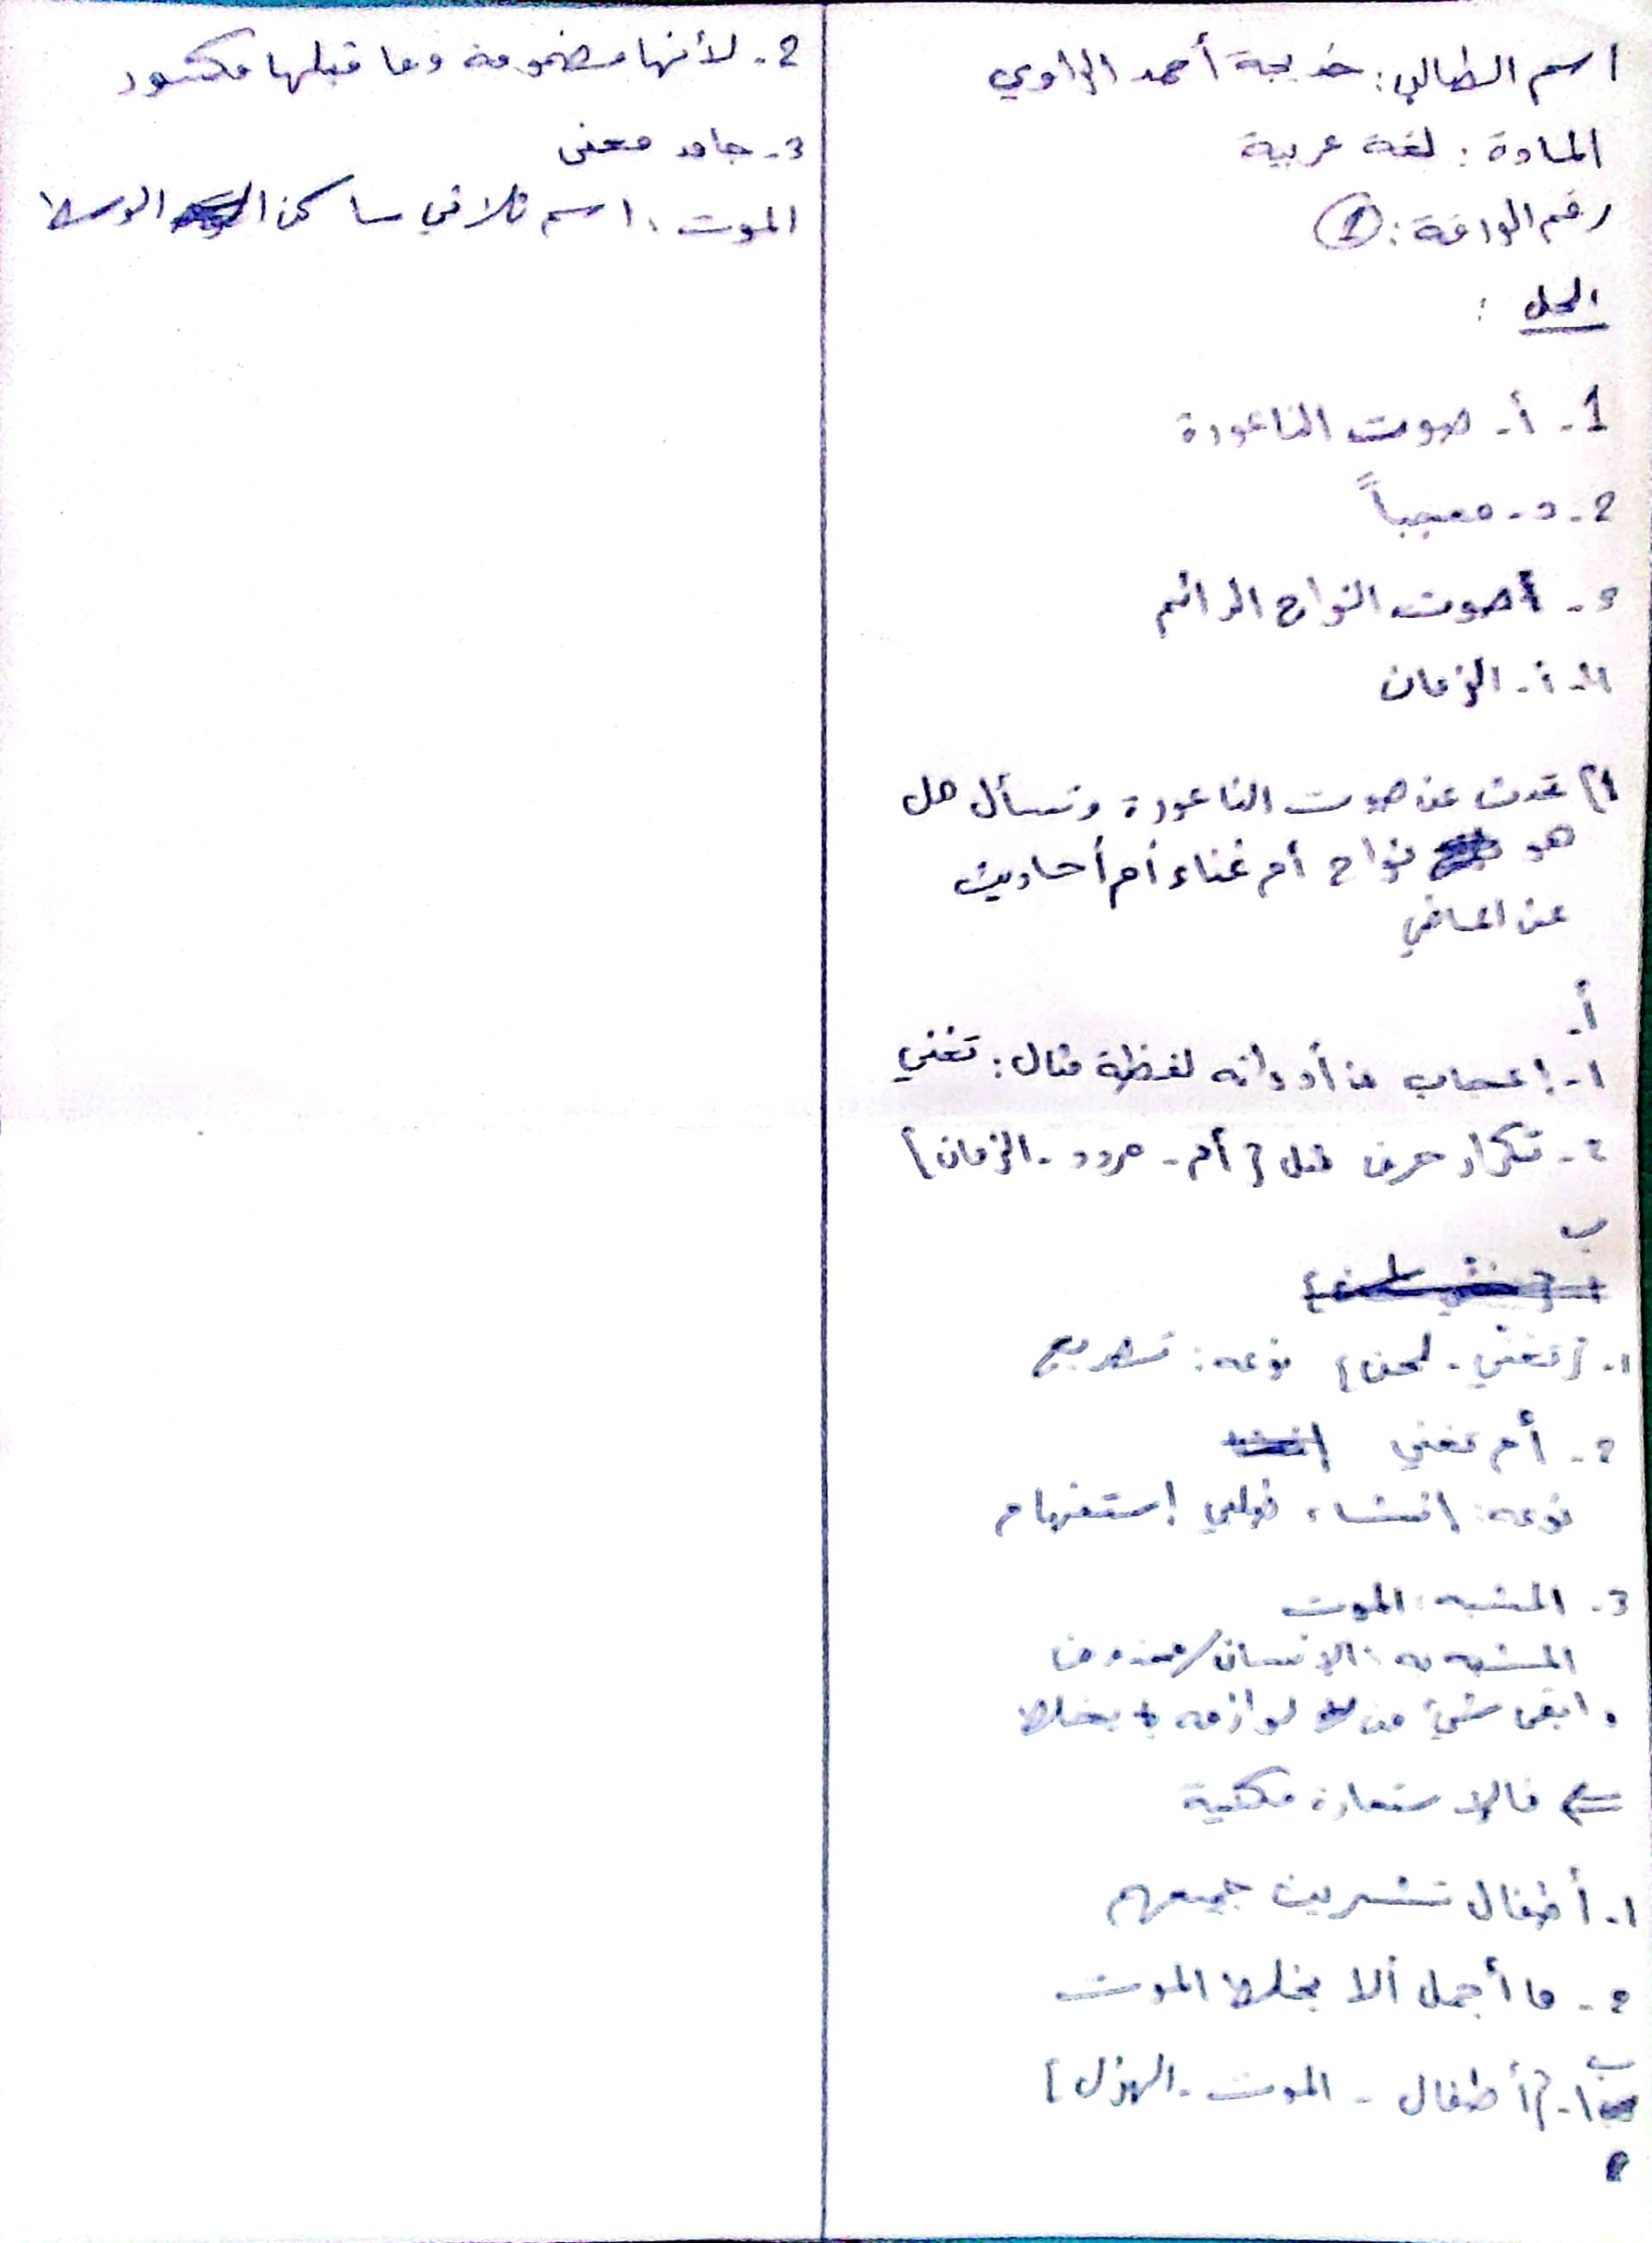 اسم الطالب: خديجة أحمد الراوي
المادة: لغة عربية
رقم الورقة: ①
الحل:
1- أ- صوت الناعورة
2- د- معجباً
3- أصوت النواح الدائم
4- أ- الزمان
2) تحدث عن صوت الناعورة وتسأل هل
هو نواح أم غناء أم أحاديث
عن الماضي
أ-
1- إعجاب من أدواته لفظة مثال: تغني
2- تكرار حرف مثل {أم - مردد - الزمان}
ب
1- {تغني - لحن} نوعه: تصريع
2- أم تغني
نوعه: إنشاء طلبي إستفهام
3- المشبه: الموت
المشبه به: الإنسان/محذوف
وابقى شيئ من لوازمه يخلط
⇐ فالاستعارة مكنية
1- أطفال تشرين جميعهم
2- ما أجمل ألا يخلط الموت
ب
1- {أطفال - الموت - الهزل}
2- لأنها مضمومة وما قبلها مكسور
3- جامد معنى
الموت: اسم ثلاثي ساكن الوسط